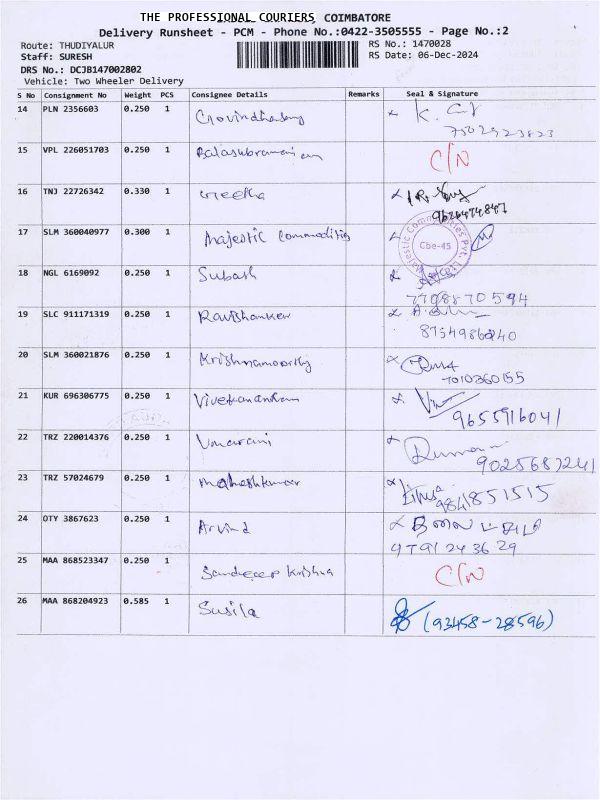 THE PROFESSIONAL COURIERS, COIMBATORE
Delivery Runsheet - PCM - Phone No.:0422-3505555 - Page No.:2
Route: THUDIYALUR RS No.: 1470028
Staff: SURESH RS Date: 06-Dec-2024
DRS No.: DCJB147002802
Vehicle: Two Wheeler Delivery
S No Consignment No Weight PCS Consignee Details Remarks Seal & Signature
14 PLN 2356603 0.250 1
15 VPL 226051703 0.250 1 Balasubramanian C/N
16 TNJ 22726342 0.330 1 Geetha
9626474847
17 SLM 360040977 0.300 1 Majestic Commodities
Majestic Commodities Pvt. Ltd. Cbe-45
18 NGL 6169092 0.250 1 Subash
7708870594
19 SLC 911171319 0.250 1 Ravishanker
8754986840
20 SLM 360021876 0.250 1 Krishnamoorthy
7010360155
21 KUR 696306775 0.250 1 Vivekanandham
9655916041
22 TRZ 220014376 0.250 1 Umarani
9025687241
23 TRZ 57024679 0.250 1 Maheshkumar
9841851515
24 OTY 3867623 0.250 1 Arvind
9791243629
25 MAA 868523347 0.250 1 Sandeep Krishna C/N
26 MAA 868204923 0.585 1 Susila (93458-28596)